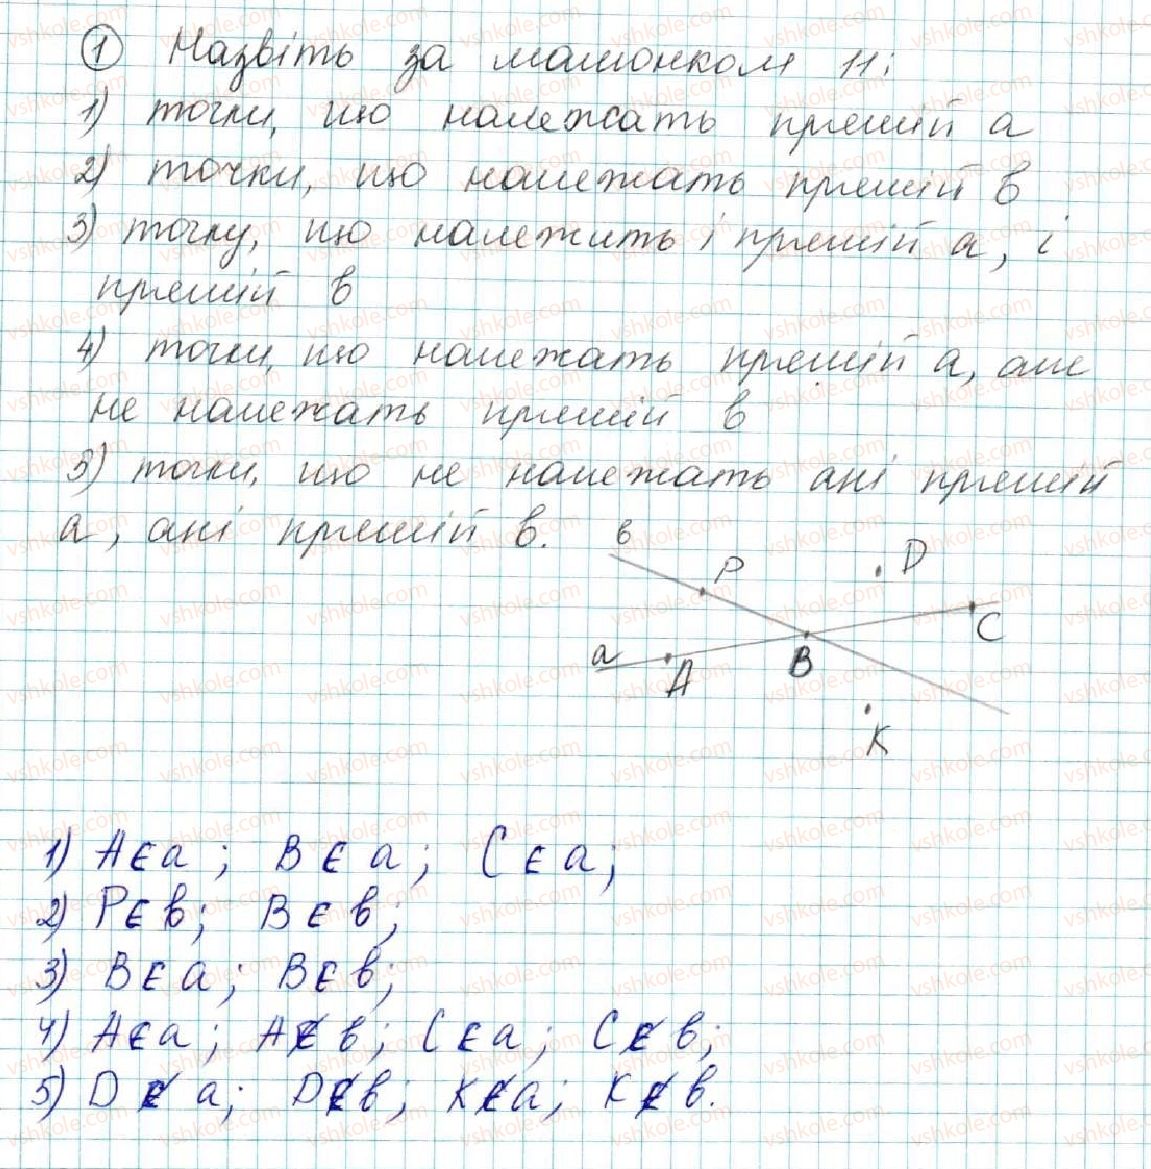 1 Назвіть за малюнком 11:
1) точки, що належать прямій a
2) точки, що належать прямій b
3) точку, що належить і прямій a, і
прямій b
4) точки, що належать прямій a, але
не належать прямій b
5) точки, що не належать ані прямій
a, ані прямій b.
b
P
D
C
a
A
B
K
1) A∈a; B∈a; C∈a;
2) P∈b; B∈b;
3) B∈a; B∈b;
4) A∈a; A∉b; C∈a; C∉b;
5) D∉a; D∉b; K∉a; K∉b.
vshkole.com